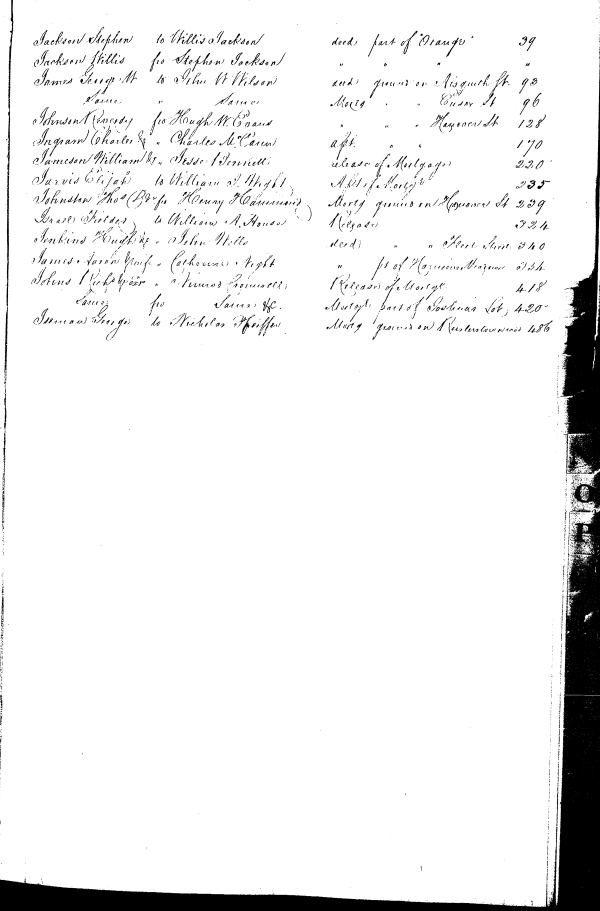 Jackson Stephen to Willis Jackson deed part of "Orange" 39
Jackson Willis fro Stephen Jackson " " " "
James George W to John W Wilson deed ground on Aisquith St. 93
Same " Same Mortg " " Essex St 96
Johnson Kennedy fro Hugh W. Evans " " " Hanover St 128
Ingram Charles &c " Charles McCann asst. " " 170
Jameson William &c " Jesse Bennett release of Mortgage 220
Jarvis Elijah to William J. Wight Asst of Mortge 235
Johnston Thos D &c fro Henry Hammond Mortg ground on Hanover St 239
Israel Fielder to William A. House Release 324
Jenkins Hugh &c " John Wells deed " " Fleet Street 340
James Aaron " Night " pt of 354
Johns Rich " Release of Mortge 418
Same fro Same &c. Mortge part of Lot 420
Iseman George to Nicholas Pfeiffer Mortg ground on Reisterstown 486
O